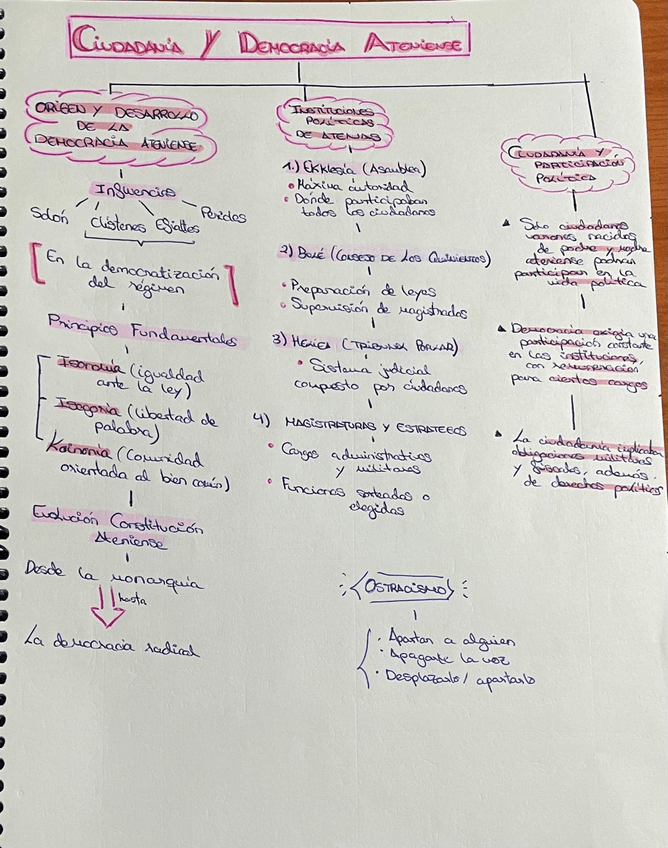 CIUDADANÍA Y DEMOCRACIA ATENIENSE
ORIGEN Y DESARROLLO
DE LA
DEMOCRACIA ATENIENSE
Influencias
Solón Clístenes Efialtes Pericles
En la democratización
del régimen
Principios Fundamentales
Isonomía (igualdad
ante la ley)
Isegoría (libertad de
palabra)
Koinonía (Comunidad
orientada al bien común)
Evolución Constitución
Ateniense
Desde la monarquía
hasta
La democracia radical
INSTITUCIONES
POLÍTICAS
DE ATENAS
1.) Ekklesía (Asamblea)
• Máxima autoridad
• Donde participaban
todos los ciudadanos
2) BOULÉ (CONSEJO DE LOS QUINIENTOS)
• Preparación de leyes
• Supervisión de magistrados
3) HELIEA (TRIBUNAL POPULAR)
• Sistema judicial
compuesto por ciudadanos
4) MAGISTRATURAS Y ESTRATEGOS
• Cargos administrativos
y militares
• Funciones sorteadas o
elegidas
OSTRACISMO
• Apartan a alguien
• Apagarte la voz
• Desplazarlo / apartarlo
CIUDADANÍA Y
PARTICIPACIÓN
POLÍTICA
▲ Solo ciudadanos
varones nacidos
de padre y madre
ateniense podían
participar en la
vida política
▲ Democracia exigía una
participación constante
en las instituciones,
con remuneración
para ciertos cargos
▲ La ciudadanía implicaba
obligaciones militares
y fiscales, además
de derechos políticos